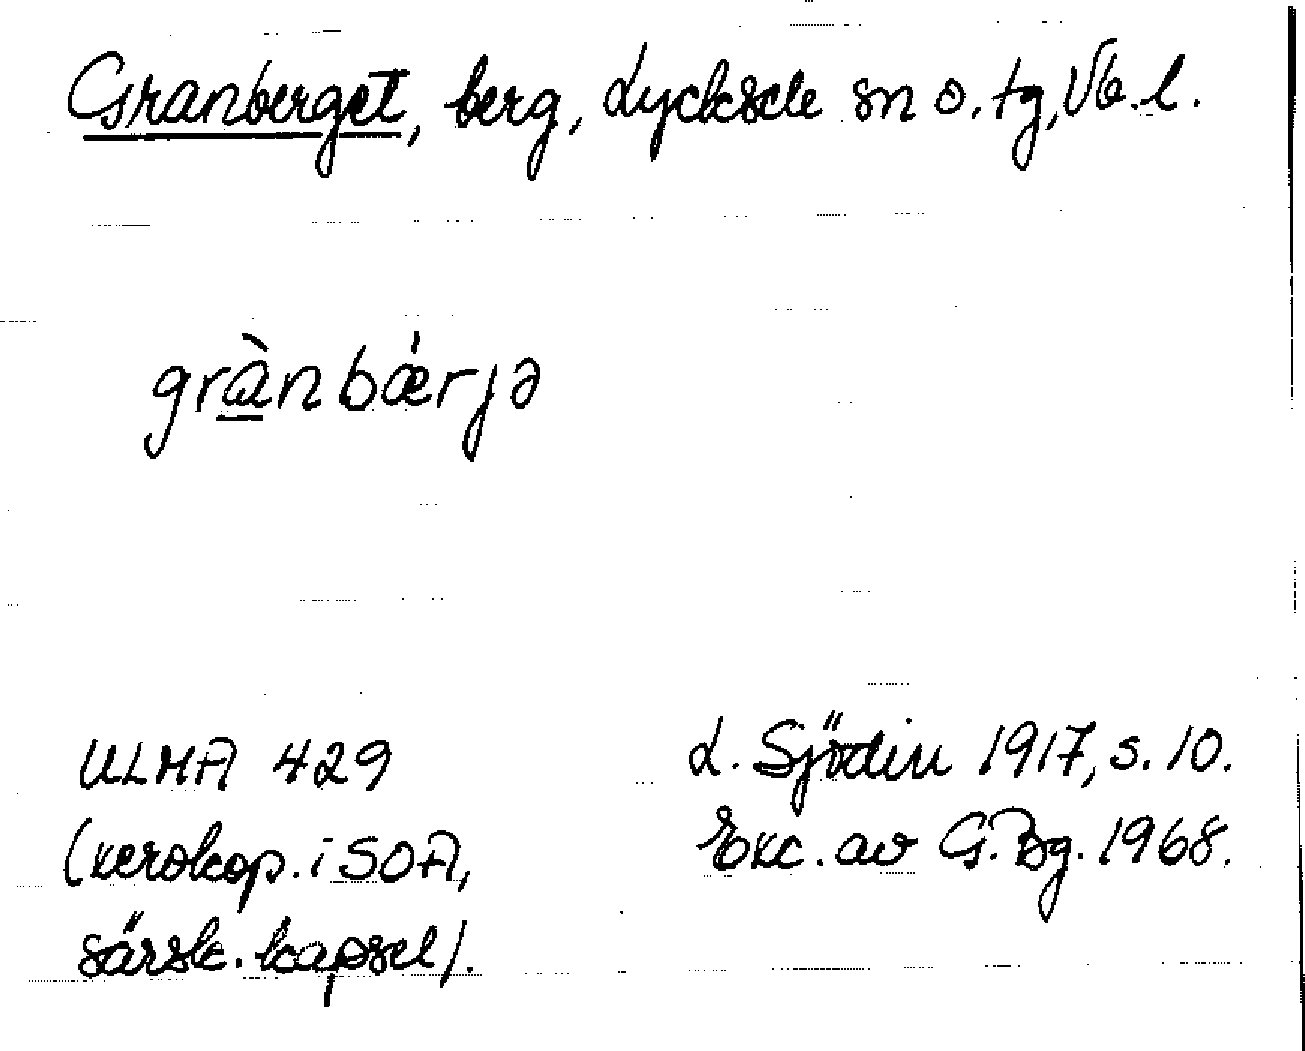 Granberget, berg, Lycksele sn o. tg, Vb. l.
grànbǽrjə
ULMA 429
(xerokop. i SOA,
särsk. kapsel).
L. Sjödin 1917, s. 10.
Exc. av G. Bg. 1968.